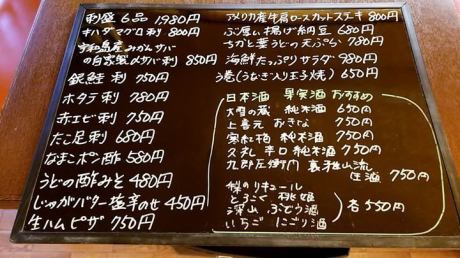 刺盛 6品 1980円
キハダマグロ刺 800円
宇和島産みかんサバ
の自家製〆サバ刺 850円
銀鮭刺 750円
ホタテ刺 780円
赤エビ刺 750円
たこ足刺 680円
なまこポン酢 580円
うどの酢みそ 480円
じゃがバター塩辛のせ 450円
生ハムピザ 750円
アメリカ産牛肩ロースカットステーキ 800円
ぶ厚い揚げ納豆 680円
ちかと葉うどの天ぷら 780円
海鮮たっぷりサラダ 980円
う巻(うなぎ入り玉子焼) 650円
日本酒 果実酒 おすすめ
大雪の蔵 純米酒 690円
上喜元 おきな 750円
寒紅梅 純米酒 750円
久礼 辛口 純米酒 750円
九郎左衛門 裏雅山流
生酒 750円
梅のリキュール
とろこく 桃姫
深山 ぶどう酒
いちご にごり酒
各550円